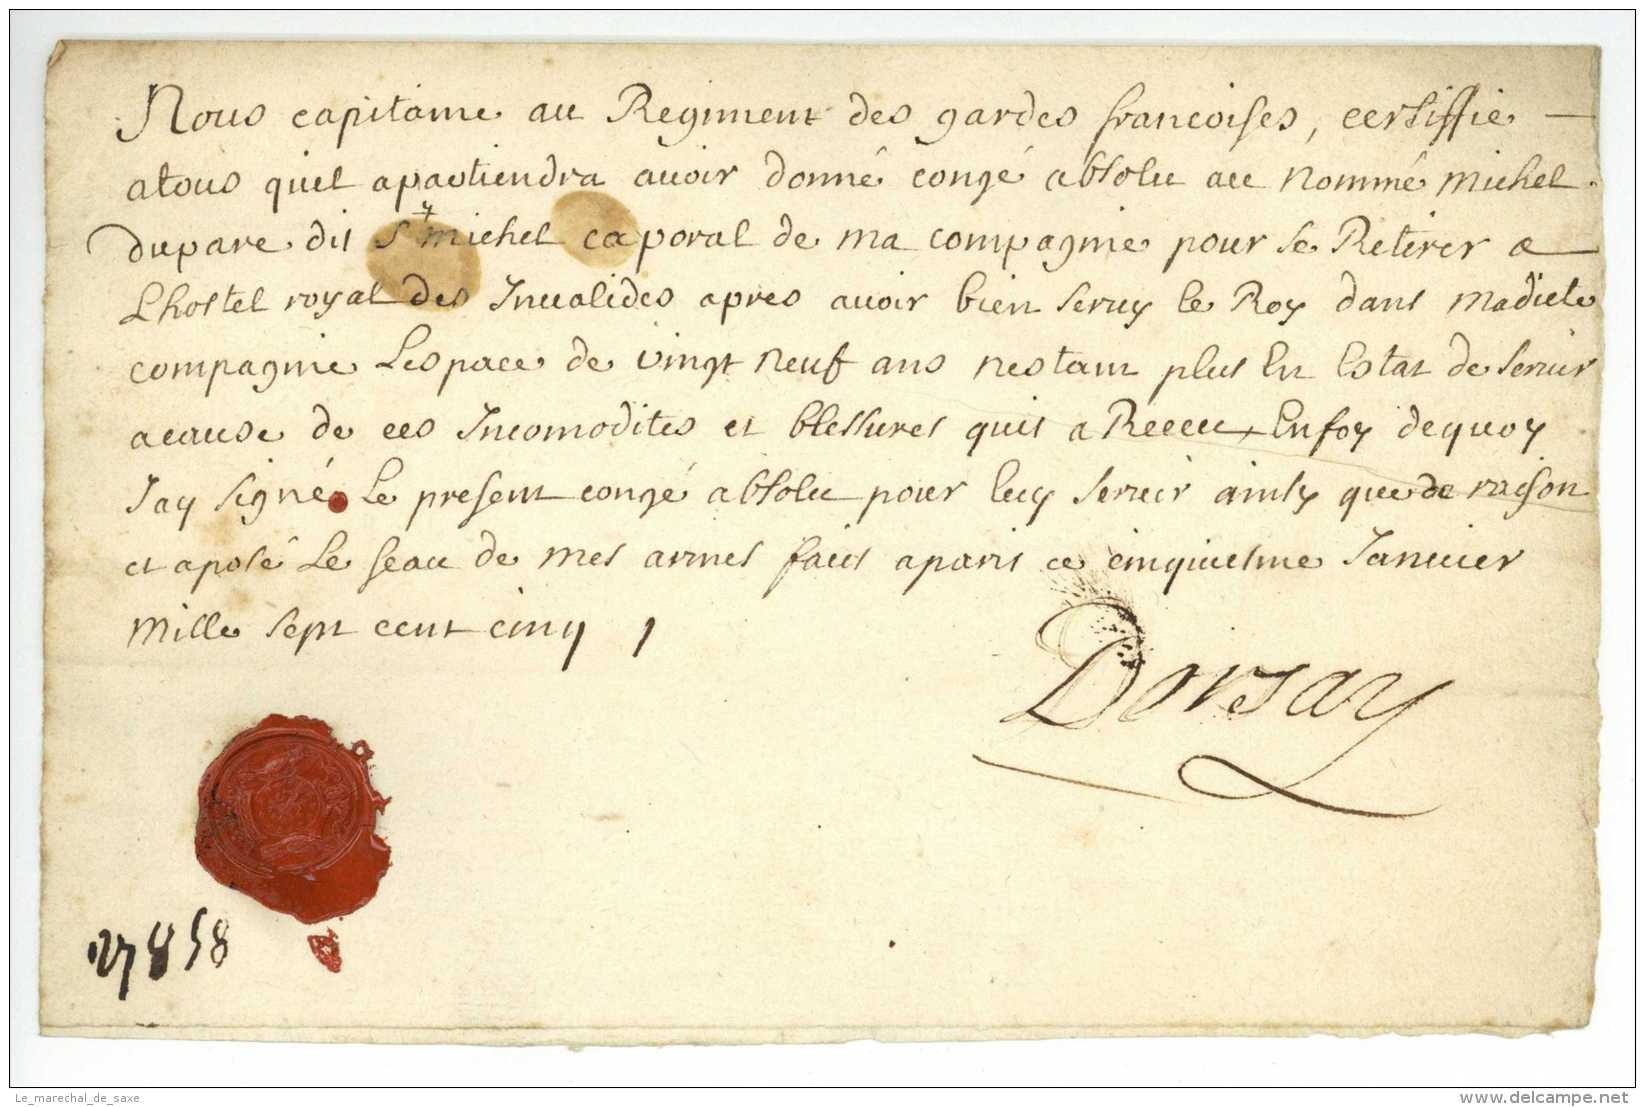 Nous capitaine au Regiment des gardes francoises, certiffie
atous quil apartiendra auoir donné congé absolu au nommé michel
duparc dit St michel caporal de ma compagnie pour se Retirer a
Lhostel royal des Inualides apres auoir bien seruy le Roy dans madicte
compagnie Lespace de vingt neuf ans nestant plus En Estat de seruir
acause de ces Incomodites et blessures quil a Receu, Enfoy dequoy
Jay signé Le present congé absolu pour luy seruir ainsy que de raison
et aposé Le seau de mes armes fait aparis ce cinquiesme Januier
mille sept cent cinq
Dorsay
27858
Le_marechal_de_saxe
www.delcampe.net